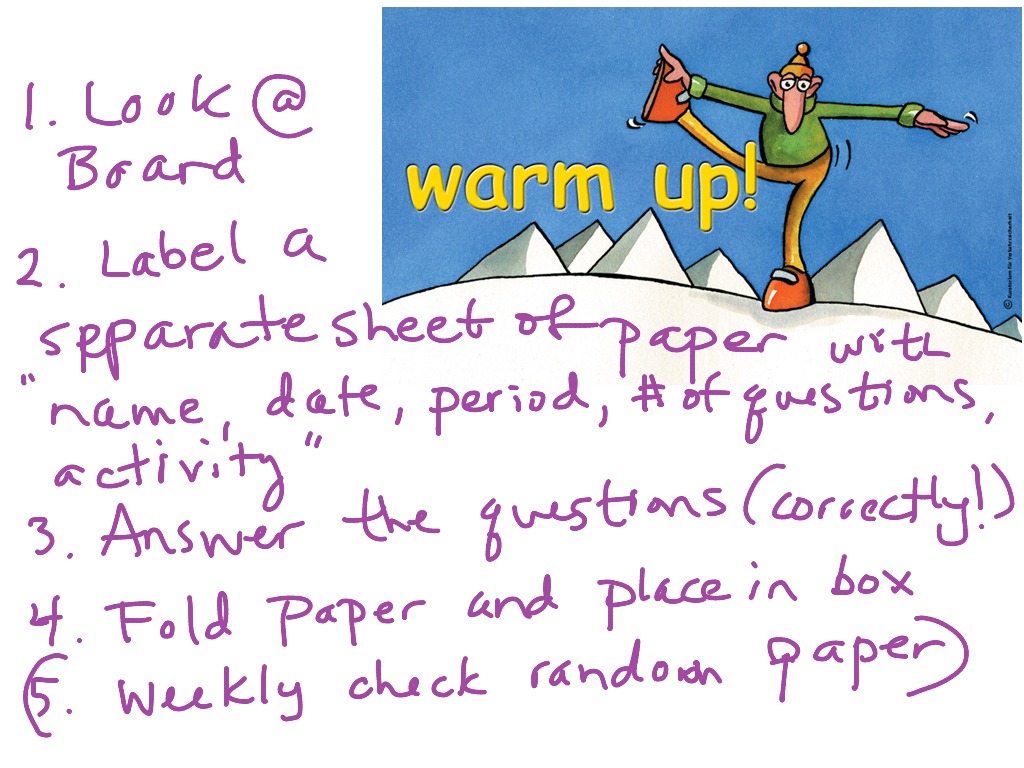 1. Look @
Board
warm up!
2. Label a
spparate sheet of paper with
"name, date, period, # of questions,
activity"
3. Answer the questions (correctly!)
4. Fold paper and place in box
(5. weekly check random paper)
© Kuratorium für Verkehrssicherheit